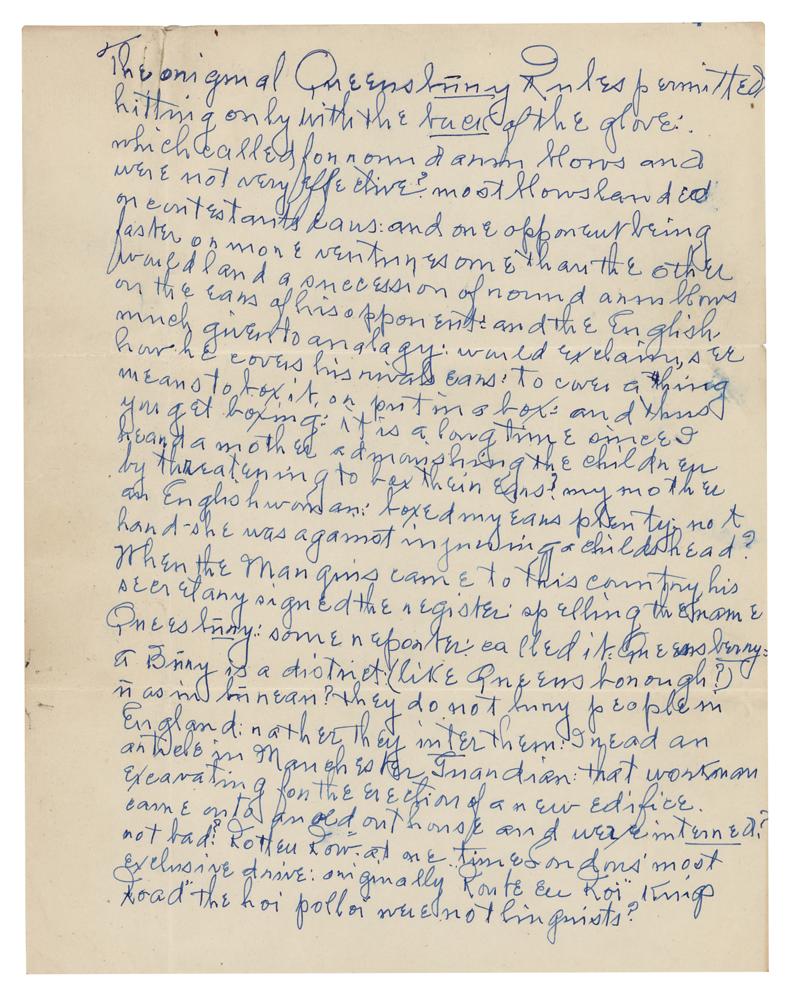 The original Queensbūry Rules permitted
hitting only with the back of the glove:.
which called for round arm blows and
were not very effective? most blows landed
on contestants ears: and one opponent being
faster or more venturesome than the other
would land a succession of round arm blows
on the ears of his opponent: and the English
much given to analagy: would exclaim, see
how he covers his rivals ears: to cover a thing
means to box it, or put in a box: and thus
you get boxing: it is a long time since I
heard a mother admonishing the children
by threatening to box their ears? my mother
an English woman: boxed my ears plenty: not
hard-she was against injuring a childs head?
When the Marquis came to this country his
secretary signed the register: spelling the name
Queesbūry: some reporter: called it: Queensberry:
a Būry is a district (like Queens borough?)
ū as in būrean? they do not bury people in
England: rather they inter them: I read an
article in Manchester Guardian: that workman
excavating for the erection of a new edifice.
came onto an old outhouse and were interned?
not bad? Rotten Row: at one time Londons' most
exclusive drive: originally Route en Roi" Kings
Road" the hoi polloi were not linguists?